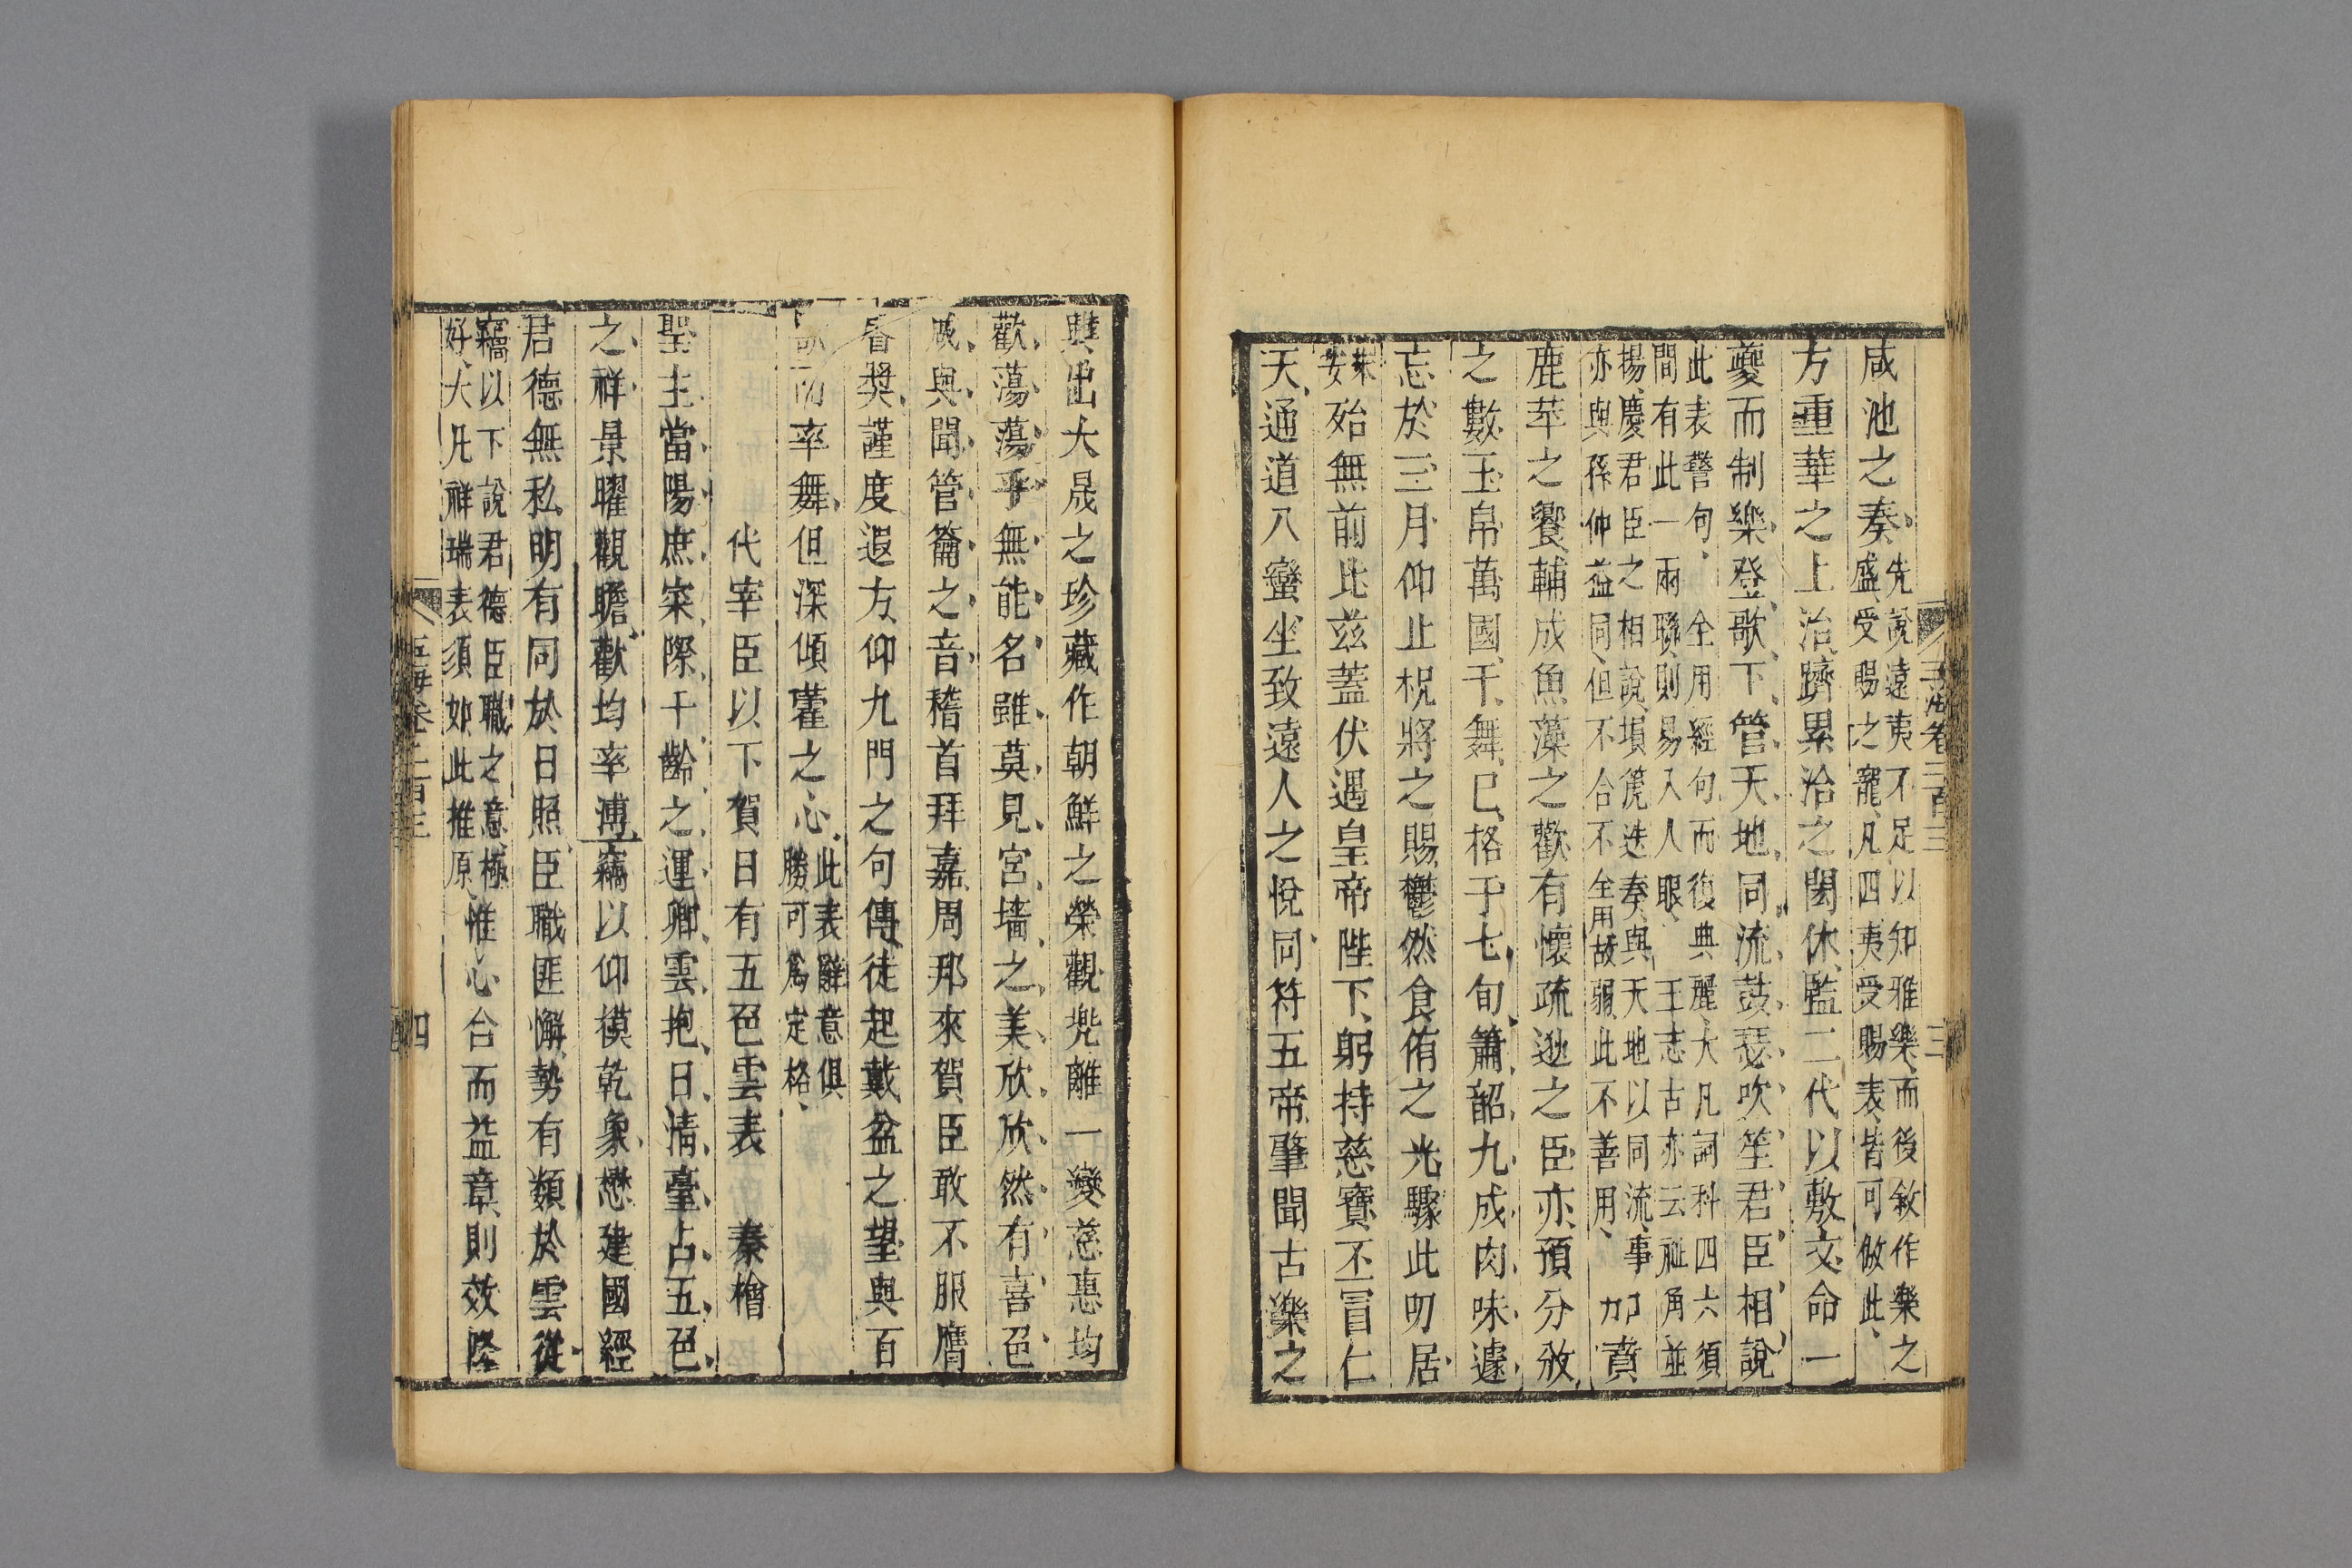 咸池之奏先說遠夷不足以知雅樂而後敘作樂之
盛受賜之寵凡四夷受賜表皆可倣此
方重華之上治躋累洽之閎休監二代以敷文命一
夔而制樂登歌下管天地同流鼓瑟吹笙君臣相說
此表警句全用經句而復典麗大凡詞科四六須
間有此一兩聯則易入人眼王志古亦云祉角並
揚慶君臣之相說塤篪迭奏與天地以同流事
亦與孫仲益同但不合不全用故弱此不善用
加賁
鹿苹之饗輔成魚藻之歡有懷疏逖之臣亦預分攽
之數玉帛萬國干舞已格于七旬簫韶九成肉味遽
忘於三月仰止柷將之賜鬱然食侑之光驟此叨居
蔡安殆無前比茲蓋伏遇皇帝陛下躬持慈寶丕冒仁
天通道八蠻坐致遠人之悅同符五帝肇聞古樂之
興出大晟之珍藏作朝鮮之榮觀兠離一變慈惠均
歡蕩蕩乎無能名雖莫見宮墻之美欣欣然有喜色
咸與聞管籥之音稽首拜嘉周邦來賀臣敢不服膺
睿奬謹度遐方仰九門之句傳徒起戴盆之望與百
而率舞但深傾藿之心此表辭意俱
勝可爲定格
代宰臣以下賀日有五色雲表 秦檜
聖主當陽庶寀際千齡之運卿雲抱日清臺占五色
之祥景曜觀瞻歡均率溥竊以仰模乾象懋建國經
君德無私明有同於日照臣職匪懈勢有類於雲從
竊以下說君德臣職之意極
好大凡祥瑞表須如此推原惟心合而益章則效隆
玉海卷二百三 三
玉海卷二百三 四